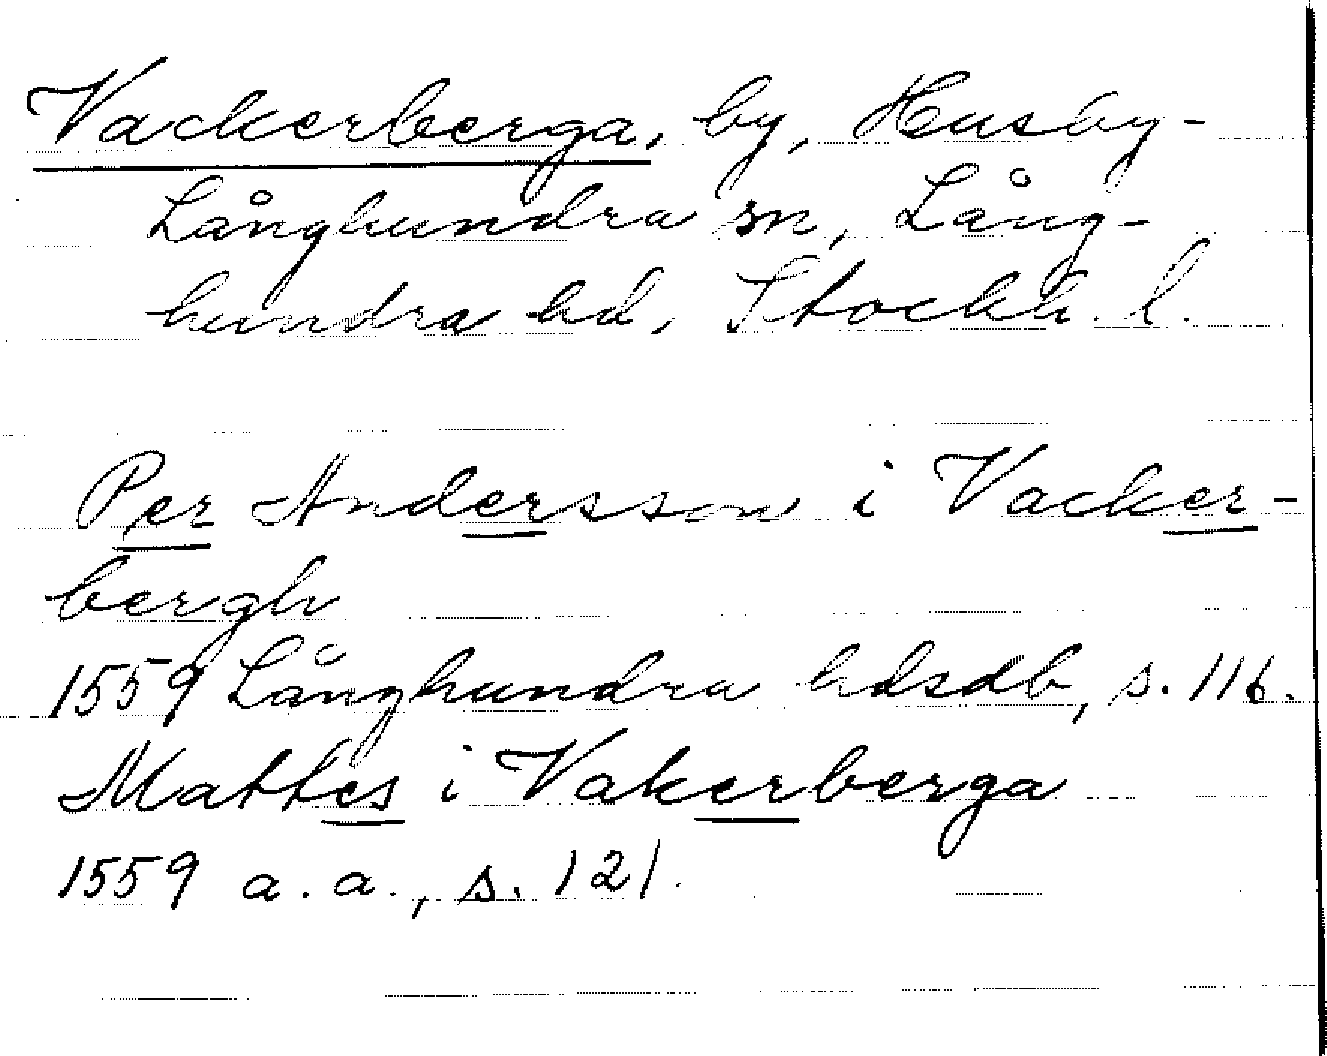 Vackerberga, by, Husby-
Långhundra sn, Lång-
hundra hd, Stockh. l.
Per Andersson i Vacker-
bergh
1559 Långhundra hdsdb, s. 116.
Mattes i Vakerberga
1559 a. a., s. 121.